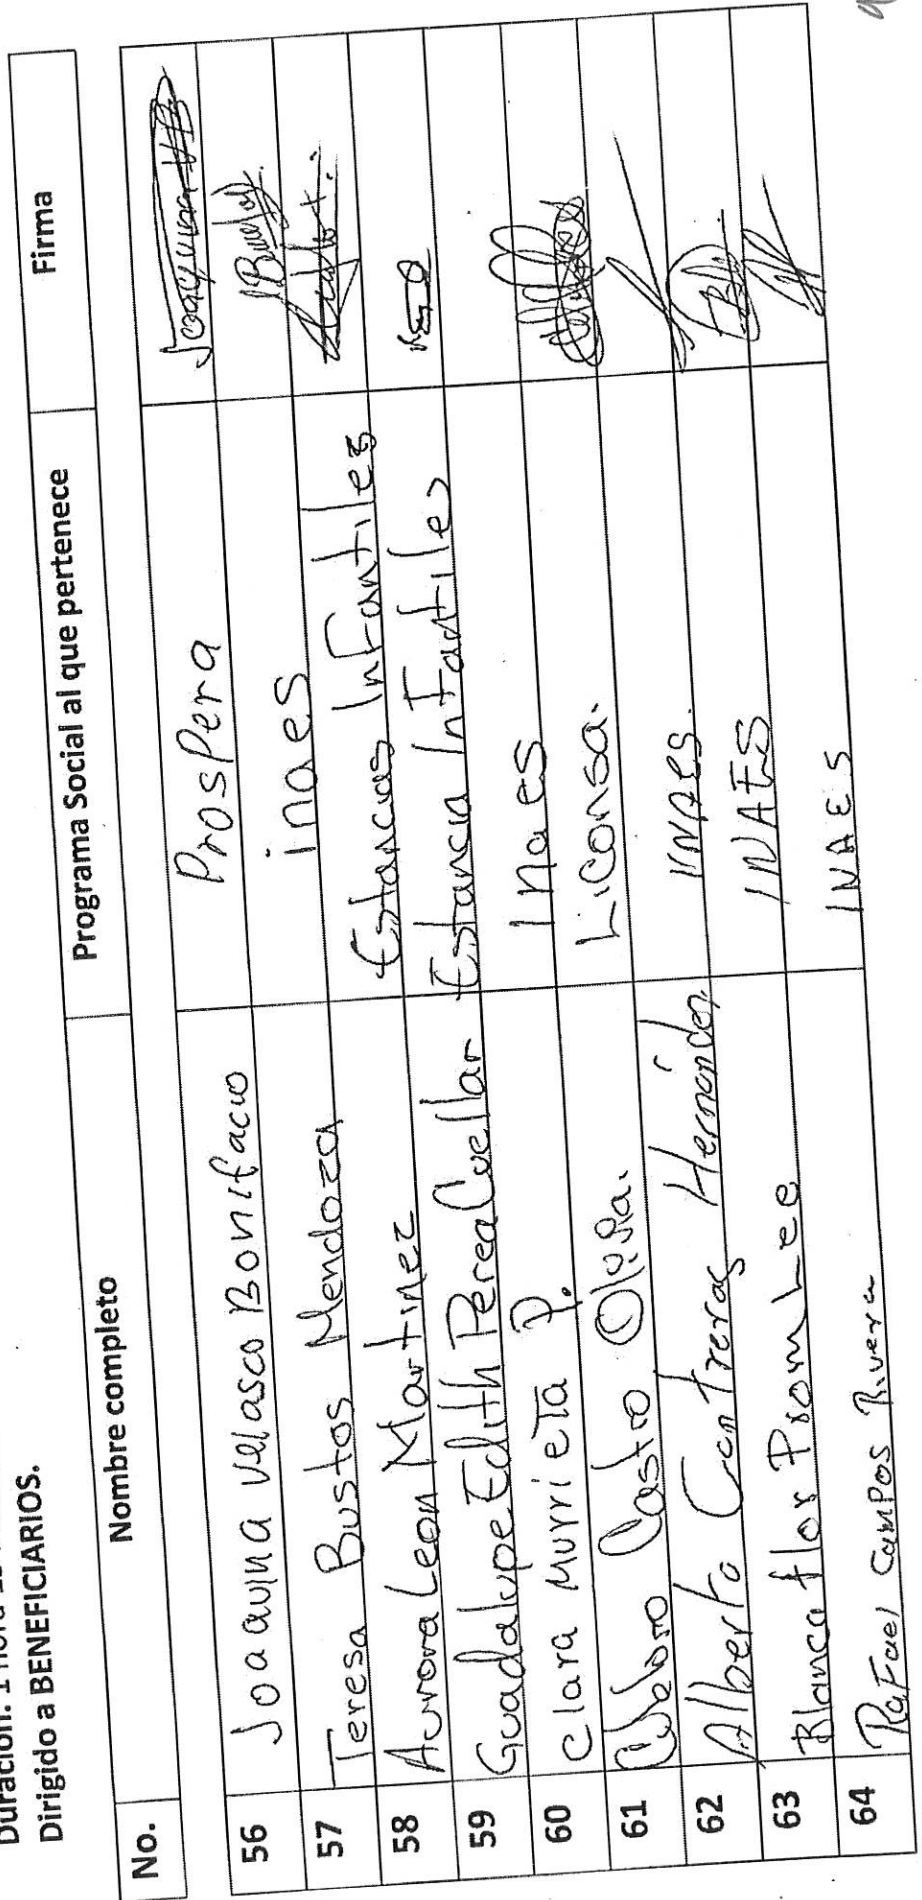 Duración: 1 hora
Dirigido a BENEFICIARIOS.
No. Nombre completo Programa Social al que pertenece Firma
56 Joaquina Velasco Bonifacio Prospera Joaquina VB
57 Teresa Bustos Mendoza inaes
58 Aurora Leon Martinez Estancias Infantiles
59 Guadalupe Edith Perea Cuellar Estancia Infantiles
60 Clara Murrieta P. Inaes
61 Castro Olivia. Liconsa.
62 Alberto Contreras Hernández INAES.
63 Blanca flor Prom Lee INAES
64 Rafael Campos Rivera INAES